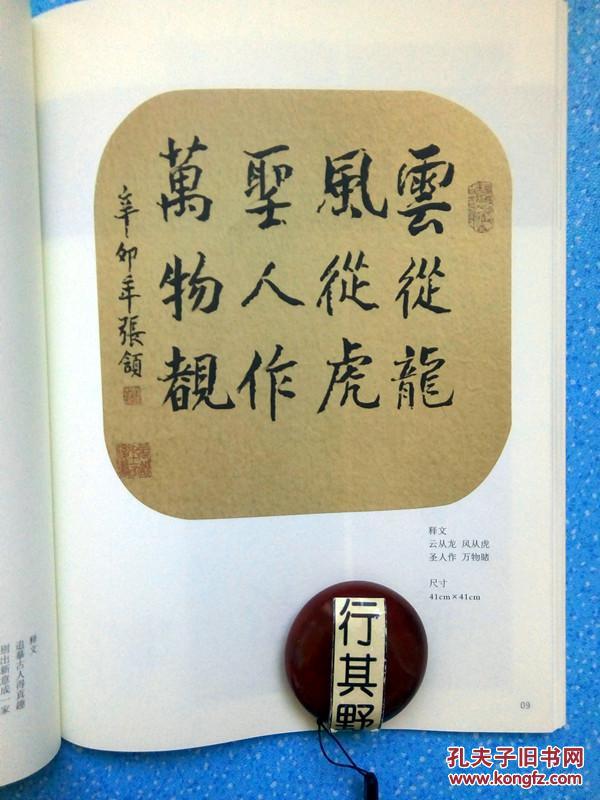 雲從龍
風從虎
聖人作
萬物覩
辛卯年張頷
释文
云从龙 风从虎
圣人作 万物睹
尺寸
41cm×41cm
行其野
09
释文
追摹古人得真趣
别出新意成一家
孔夫子旧书网
www.kongfz.com